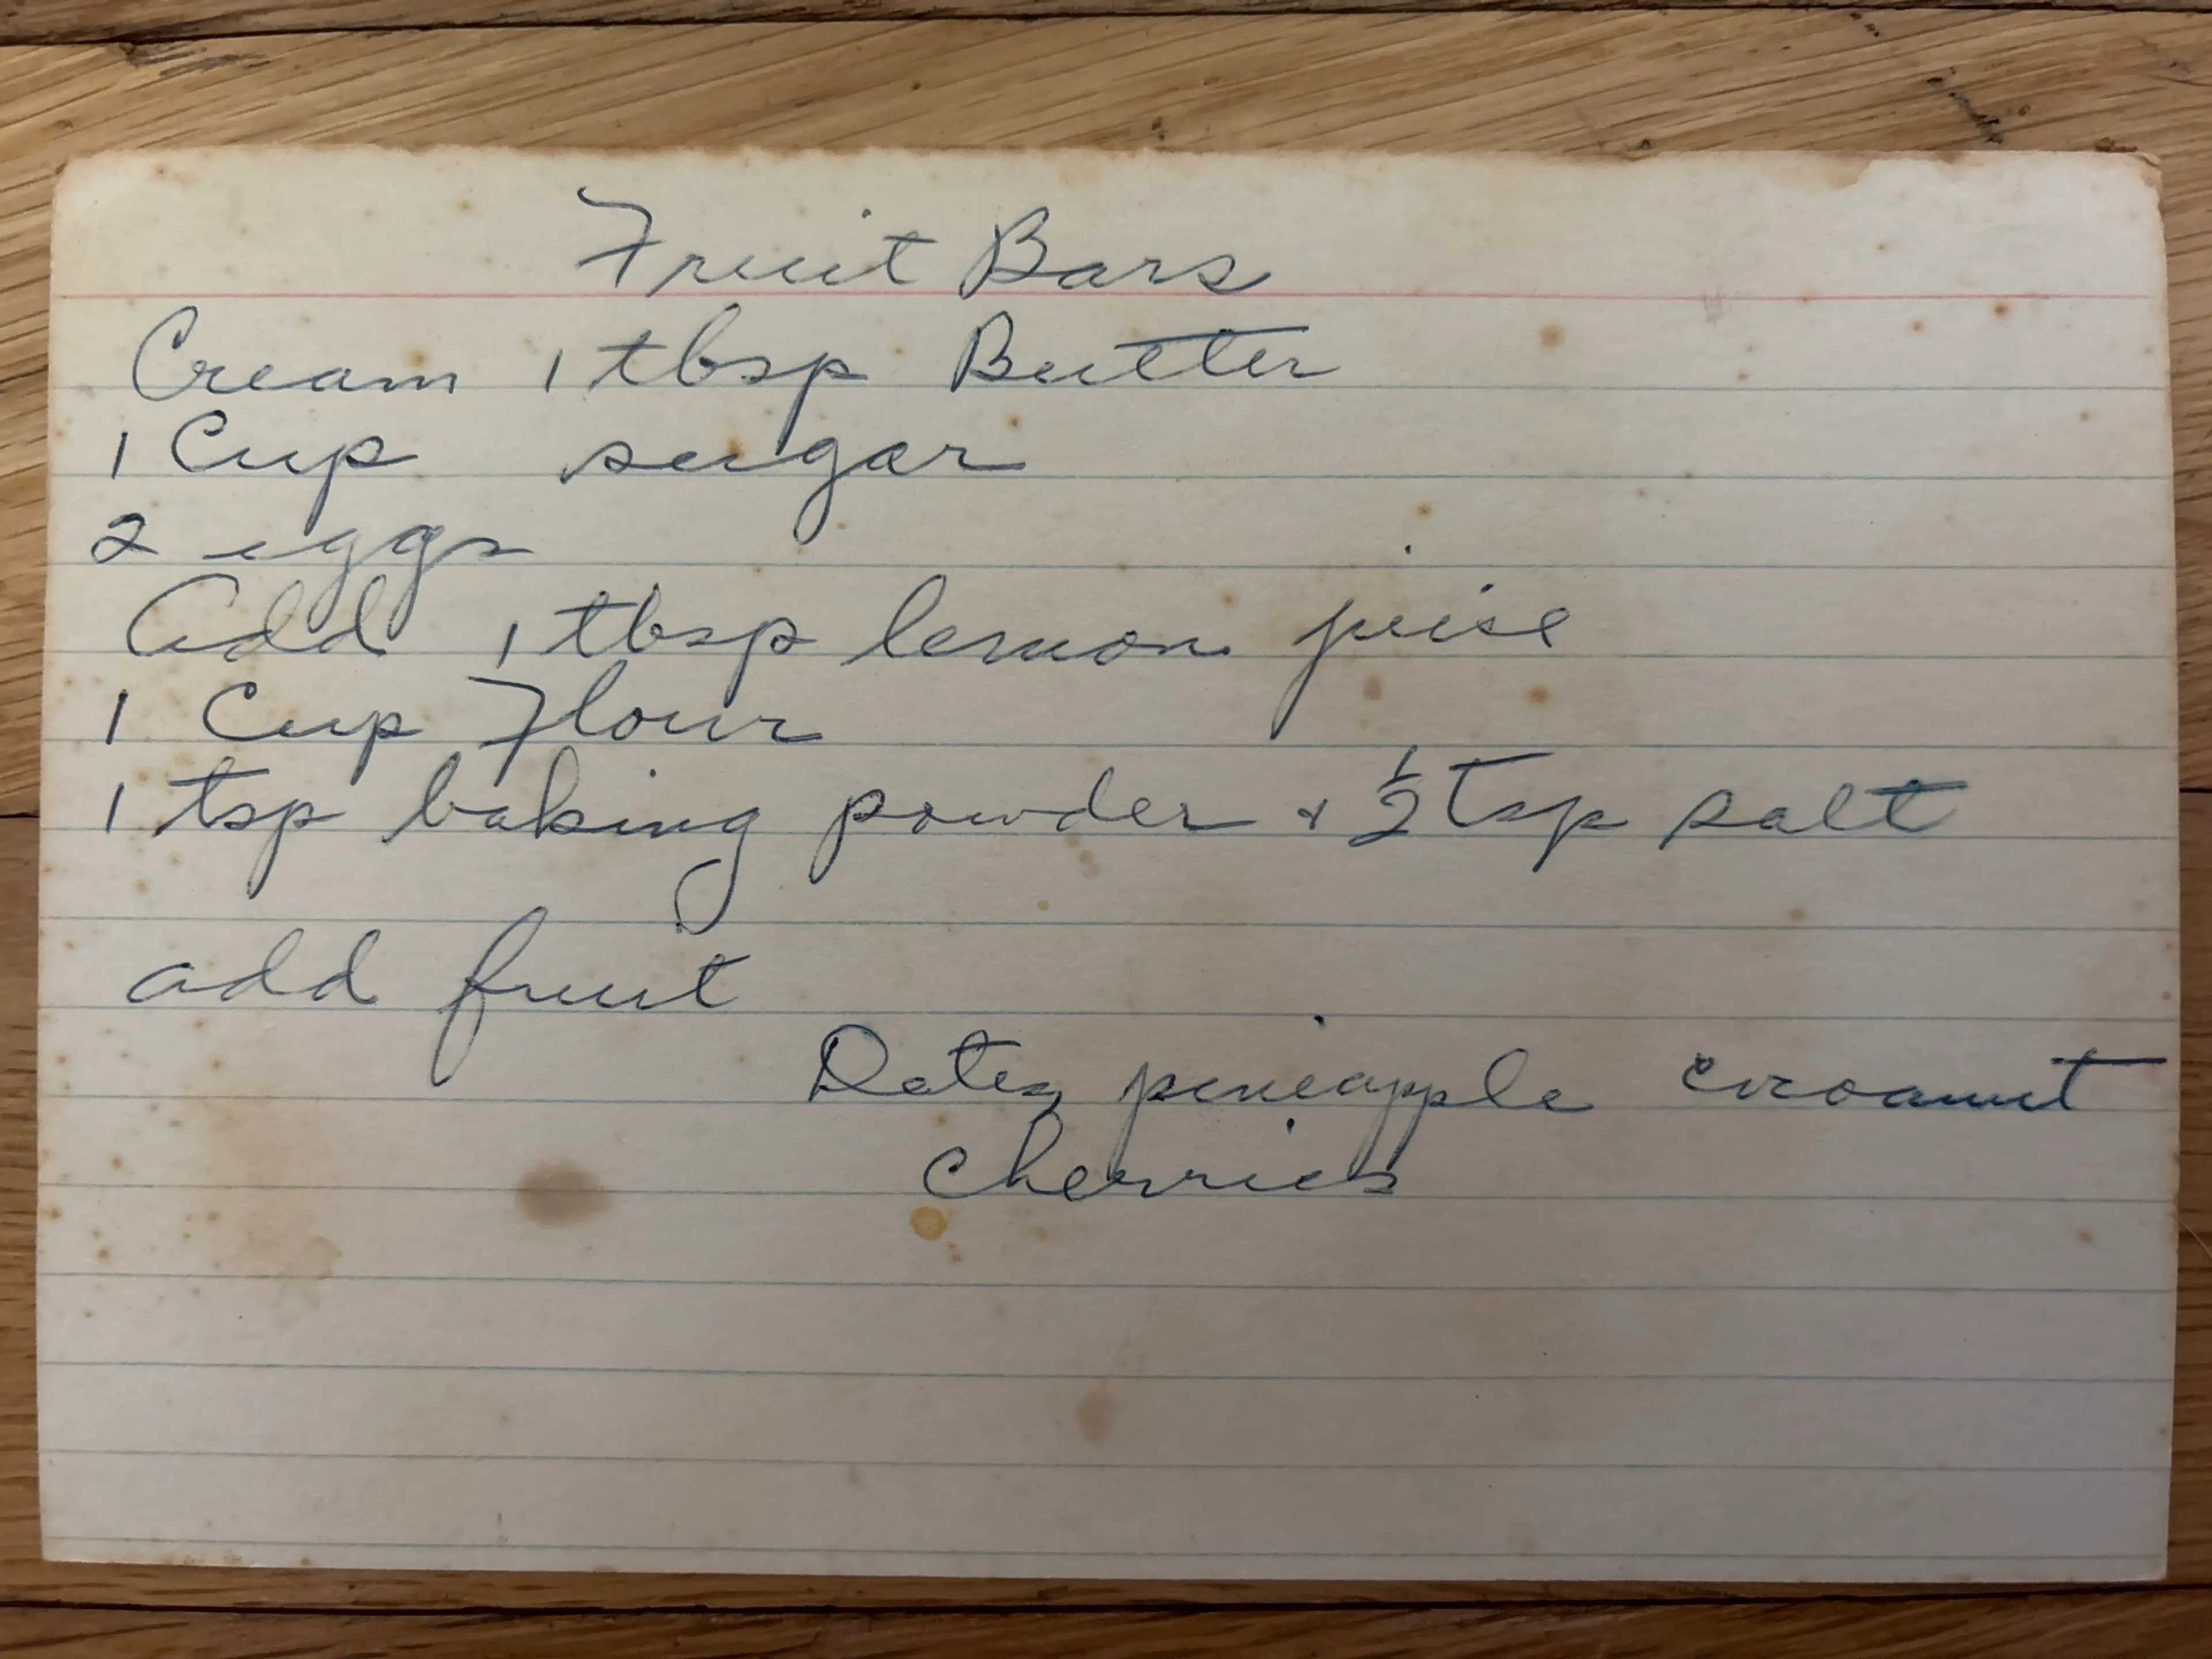 Fruit Bars
Cream 1 tbsp Butter
1 Cup sugar
2 eggs
Add 1 tbsp lemon juise
1 Cup Flour
1 tsp baking powder + ½ Tsp salt
add fruit
Dates, pineapple cocoanut
cherries